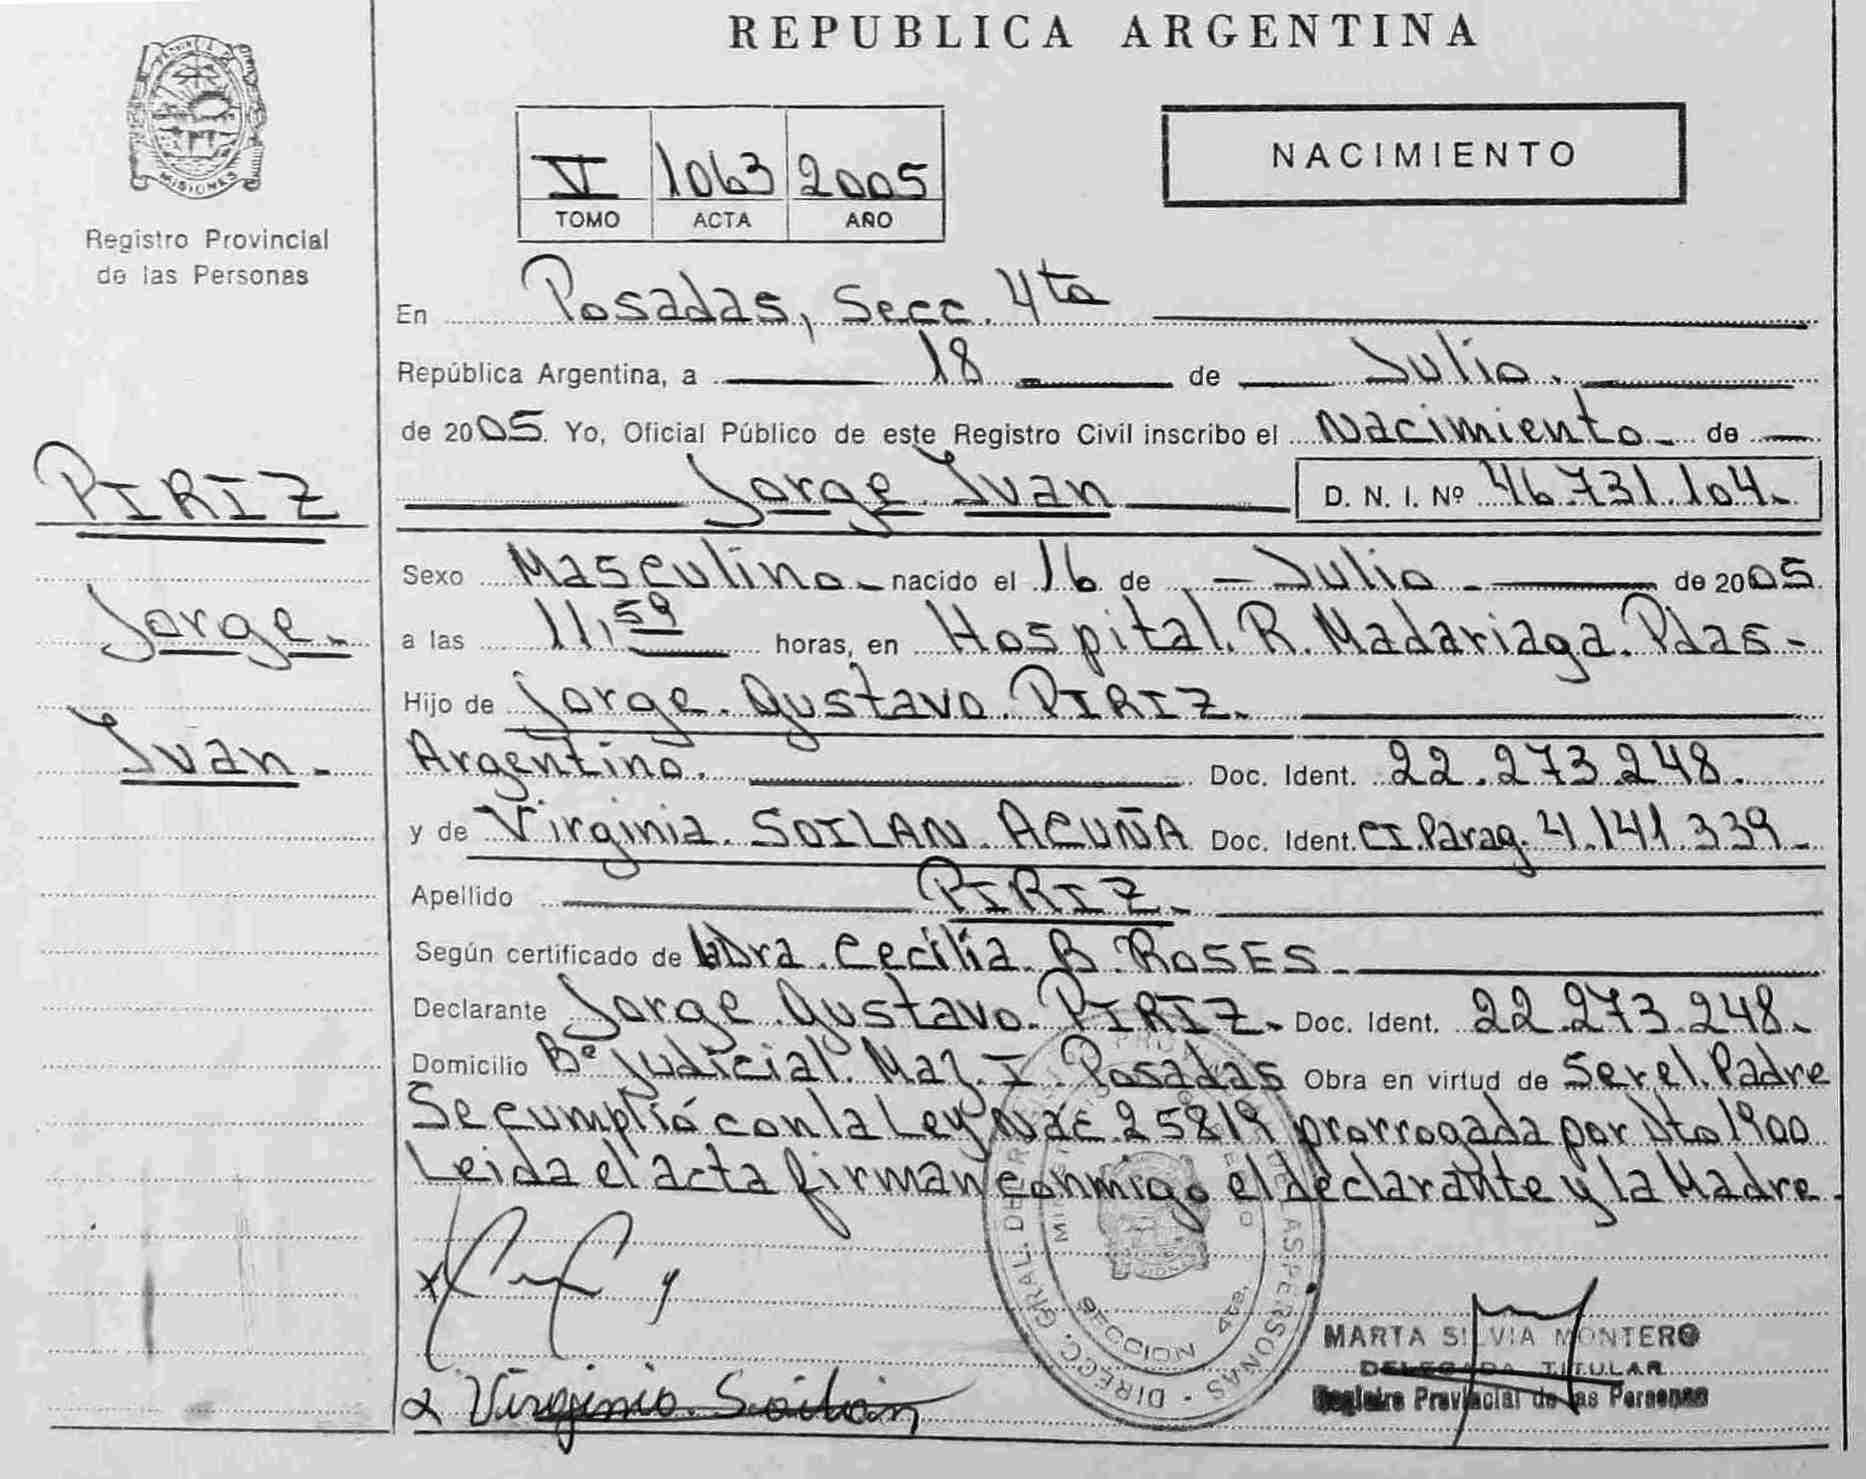 REPUBLICA ARGENTINA
MISIONES
Registro Provincial
de las Personas
V 1063 2005
TOMO ACTA AÑO
NACIMIENTO
En Posadas, Secc. 4ta
República Argentina, a 18 de Julio.
de 2005. Yo, Oficial Público de este Registro Civil inscribo el Nacimiento de
Jorge Ivan D. N. I. Nº 46.731.104.
PIRIZ
Jorge
Ivan
Sexo Masculino nacido el 16 de Julio de 2005
a las 11,59 horas, en Hospital. R. Madariaga. Pdas-
Hijo de Jorge. Gustavo. PIRIZ.
Argentino. Doc. Ident. 22.273.248.
y de Virginia. SOILAN. ACUÑA Doc. Ident. CI. Parag. 4.141.339
Apellido PIRIZ
Según certificado de Dra. Cecilia. B. ROSES
Declarante Jorge. Gustavo. PIRIZ. Doc. Ident. 22.273.248.
Domicilio Bº Judicial. Maz. I. Posadas Obra en virtud de Ser el. Padre
Se cumplió con la Ley Nac. 25819 prorrogada por Dto 1900
Leida el acta firman conmigo el declarante y la Madre.
DIRECC. GRAL. DE LAS PERSONAS
SECCION 4ta.
MARTA SILVIA MONTERO
DELEGADA TITULAR
Registro Provincial de las Personas
Virginia Soilan